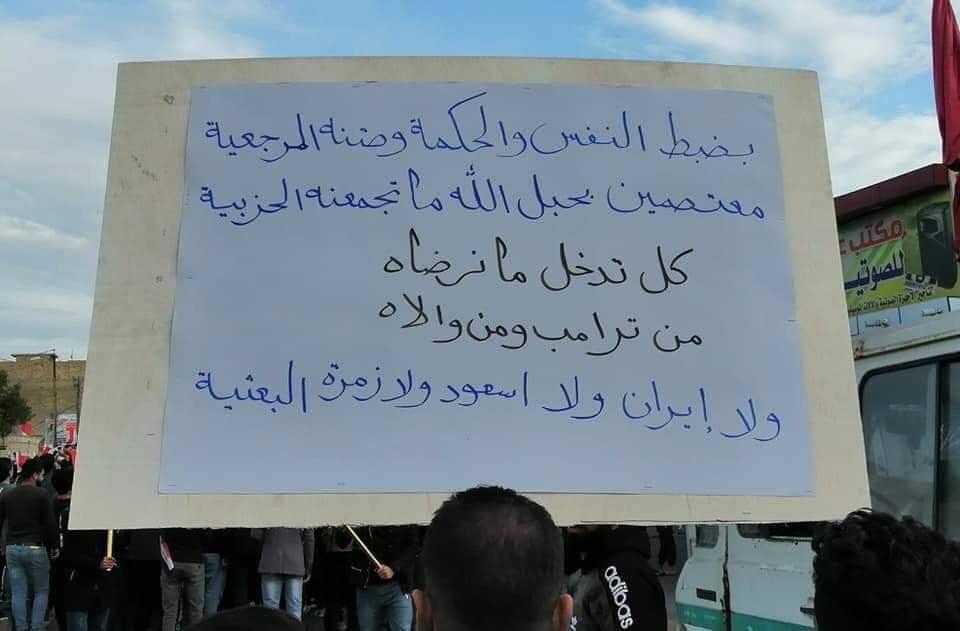 بضبط النفس والحكمة وصتنه المرجعية
معتصمين بحبل الله ما تجمعنه الحزبية
كل تدخل ما نرضاه
من ترامب ومن والاه
ولا إيران ولا اسعود ولا زمرة البعثية
مكتب
للصوتيا
adidas